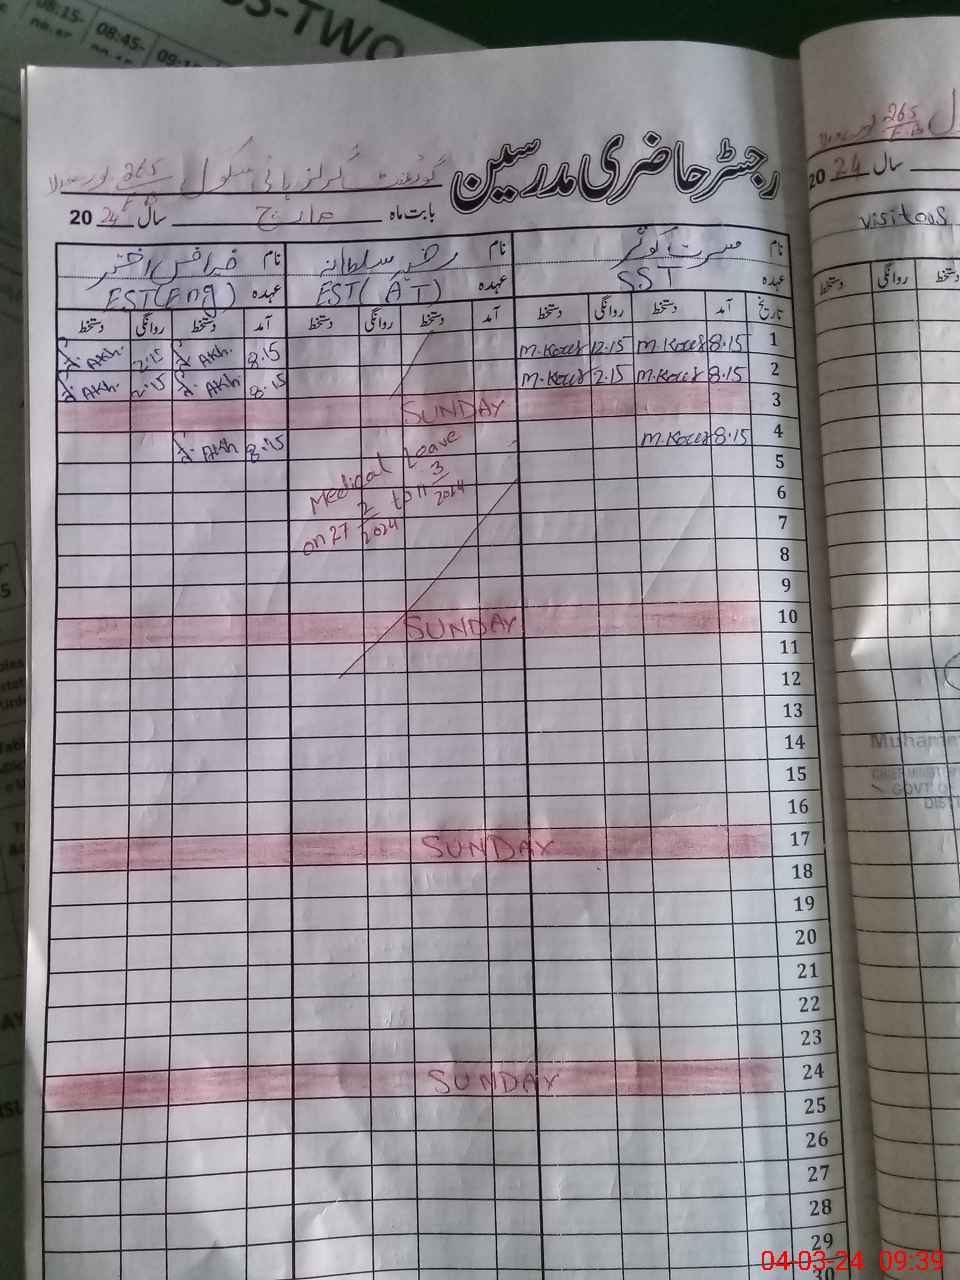 SS-TWO
08:15-
08:45-
رجسٹر حاضری مدرسین
گورنمنٹ گرلز ہائی سکول 265
بابت ماہ مارچ سال 2024
نام مسرت کوثر نام رضیہ سلطانہ نام اختر
عہدہ SST عہدہ EST(AT) عہدہ EST(Eng)
تاریخ آمد دستخط روانگی دستخط آمد دستخط روانگی دستخط آمد دستخط روانگی دستخط
1 8.15 M.Koser 12.15 M.Koser 8.15 Akh. 2.15 Akh.
2 8.15 M.Koser 2.15 M.Koser 8.15 Akh. 2.15 Akh.
3 SUNDAY
4 8.15 M.Koser 8.15 Akh
Medical Leave
on 27/2/2024 to 11/3/2024
5
6
7
8
9
10 SUNDAY
11
12
13
14
15
16
17 SUNDAY
18
19
20
21
22
23
24 SUNDAY
25
26
27
28
29
30
265
2024 سال
visitors
دستخط روانگی
GOVT OF
04-03-24 09:39